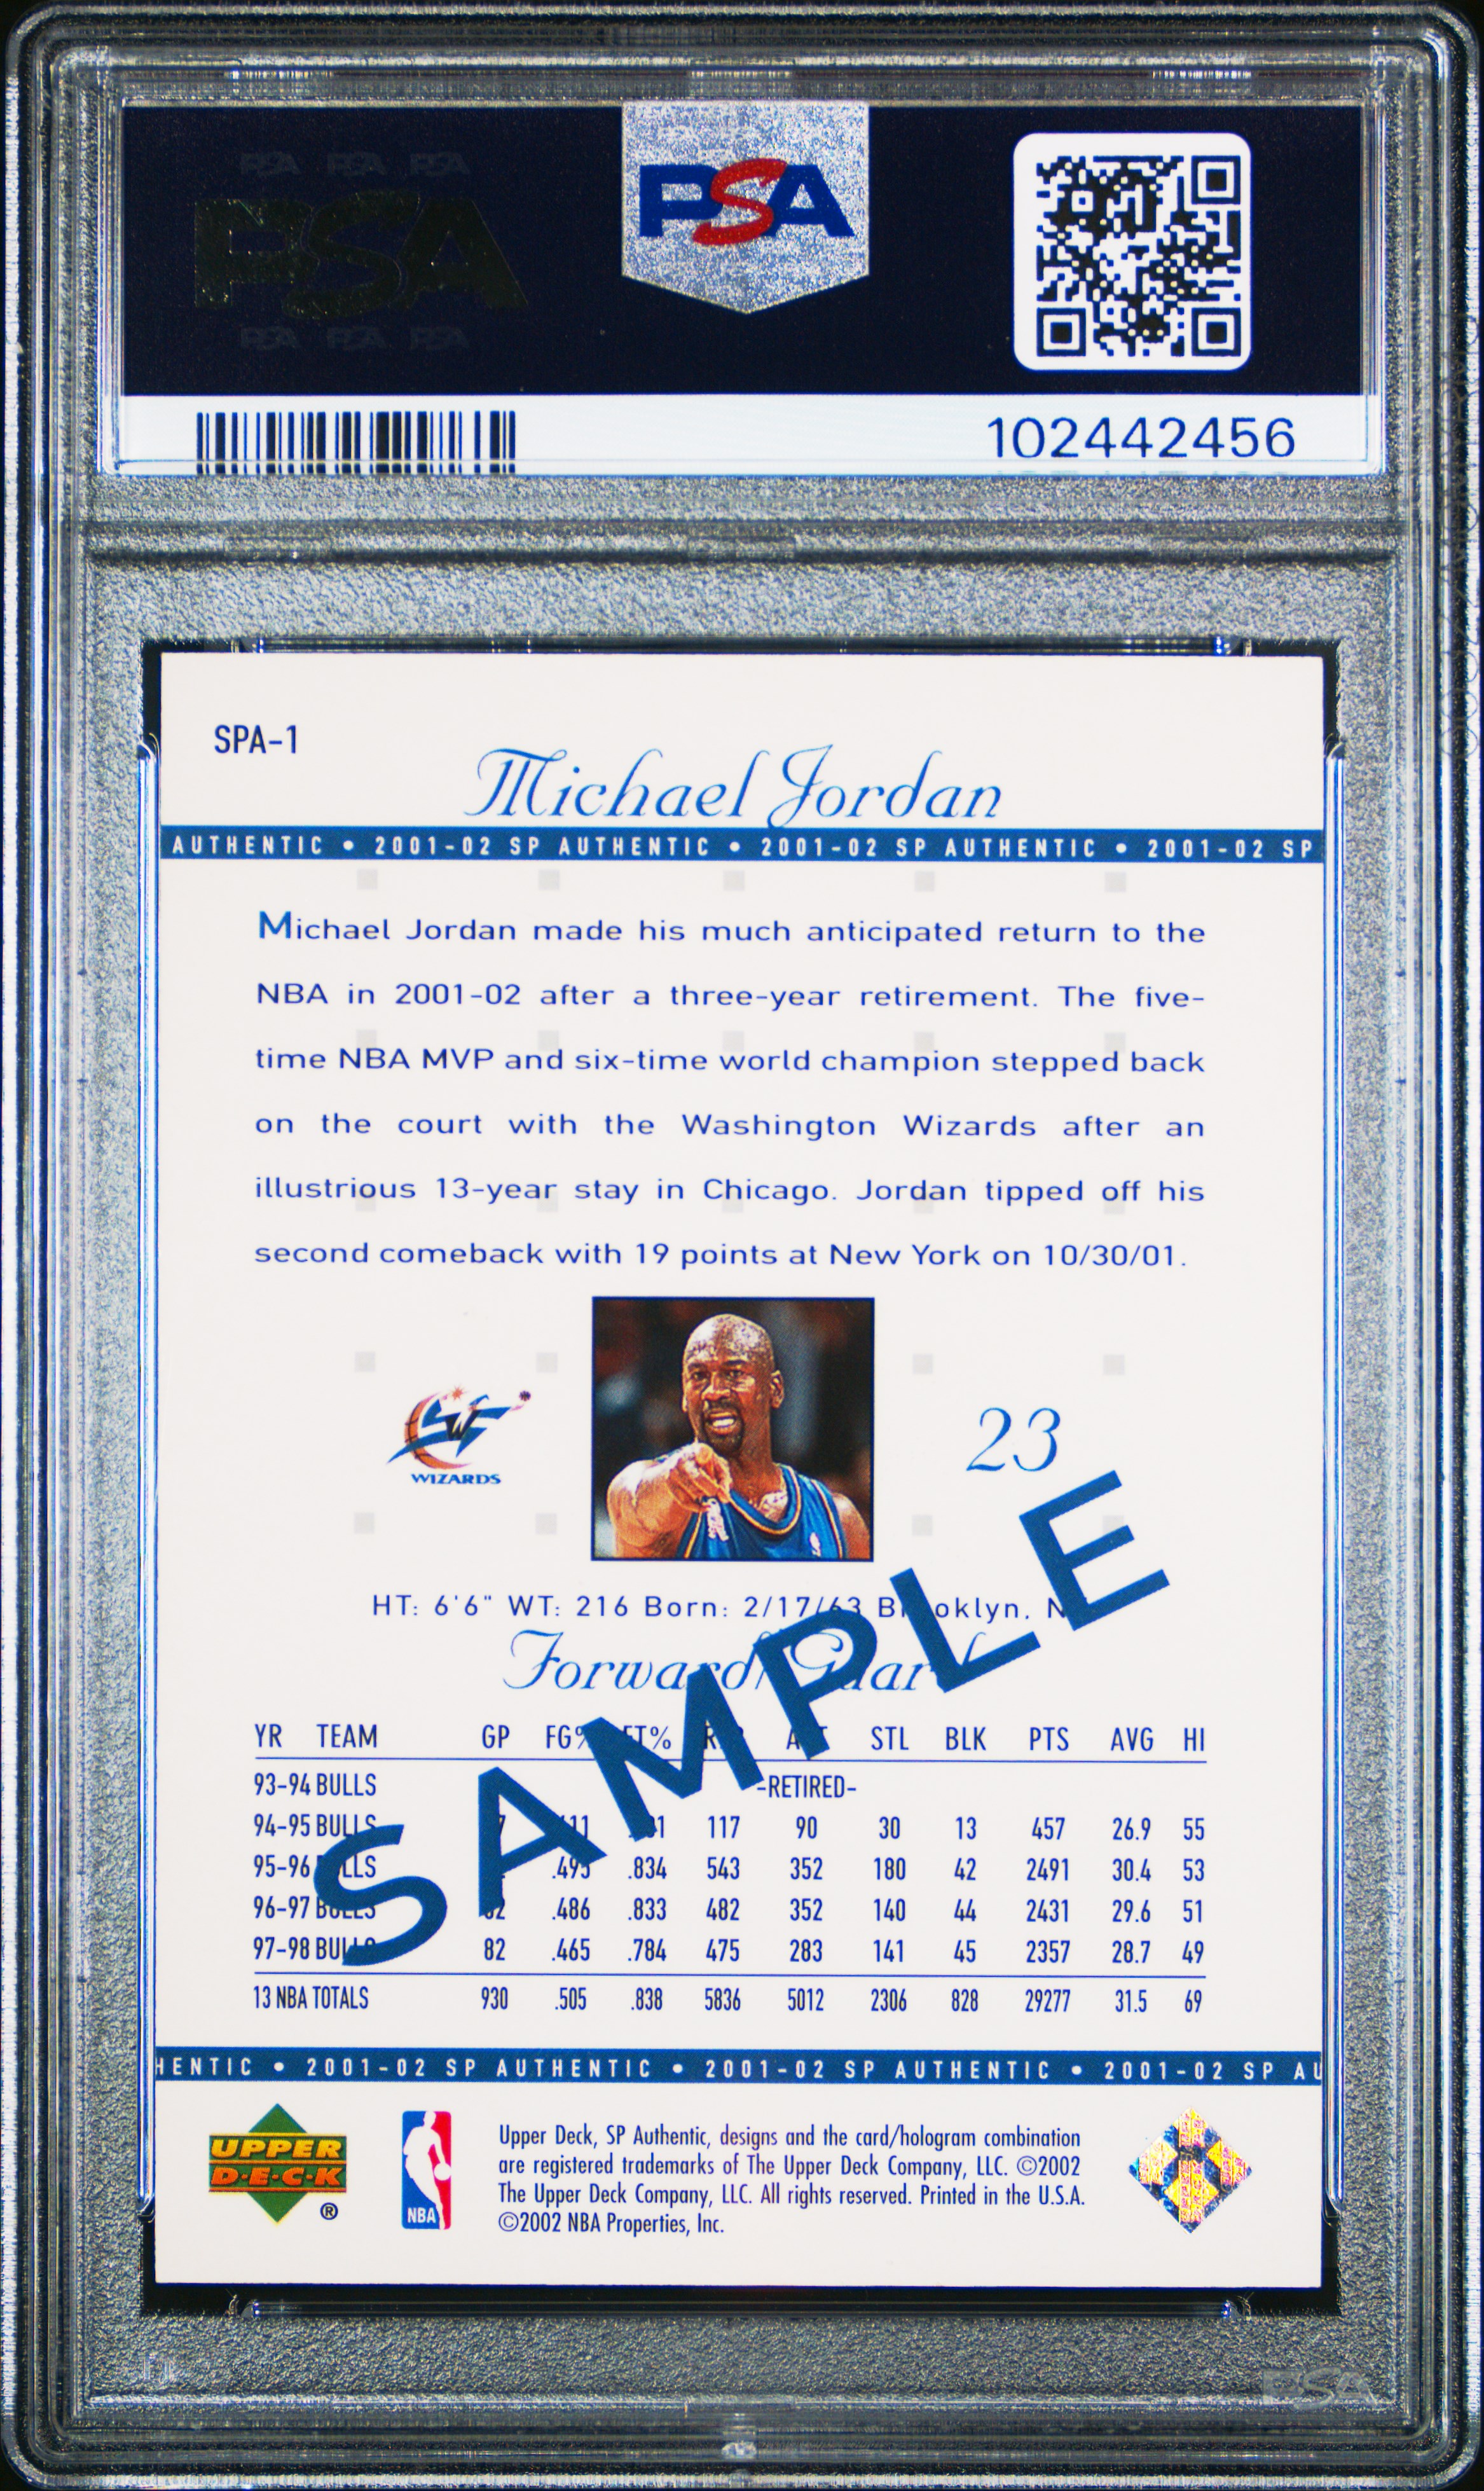 PSA PSA PSA
PSA
PSA PSA PSA
PSA
102442456
SPA-1
Michael Jordan
AUTHENTIC • 2001-02 SP AUTHENTIC • 2001-02 SP AUTHENTIC • 2001-02 SP
Michael Jordan made his much anticipated return to the
NBA in 2001-02 after a three-year retirement. The five-
time NBA MVP and six-time world champion stepped back
on the court with the Washington Wizards after an
illustrious 13-year stay in Chicago. Jordan tipped off his
second comeback with 19 points at New York on 10/30/01.
WIZARDS
23
HT: 6'6" WT: 216 Born: 2/17/63 Brooklyn, N
Forward/Guard
SAMPLE
YR TEAM GP FG% FT% STL BLK PTS AVG HI
93-94 BULLS -RETIRED-
94-95 BULLS 117 90 30 13 457 26.9 55
95-96 BULLS .495 .834 543 352 180 42 2491 30.4 53
96-97 BULLS 82 .486 .833 482 352 140 44 2431 29.6 51
97-98 BULLS 82 .465 .784 475 283 141 45 2357 28.7 49
13 NBA TOTALS 930 .505 .838 5836 5012 2306 828 29277 31.5 69
HENTIC • 2001-02 SP AUTHENTIC • 2001-02 SP AUTHENTIC • 2001-02 SP AU
UPPER
D•E•C•K
®
NBA
Upper Deck, SP Authentic, designs and the card/hologram combination
are registered trademarks of The Upper Deck Company, LLC. ©2002
The Upper Deck Company, LLC. All rights reserved. Printed in the U.S.A.
©2002 NBA Properties, Inc.
PSA